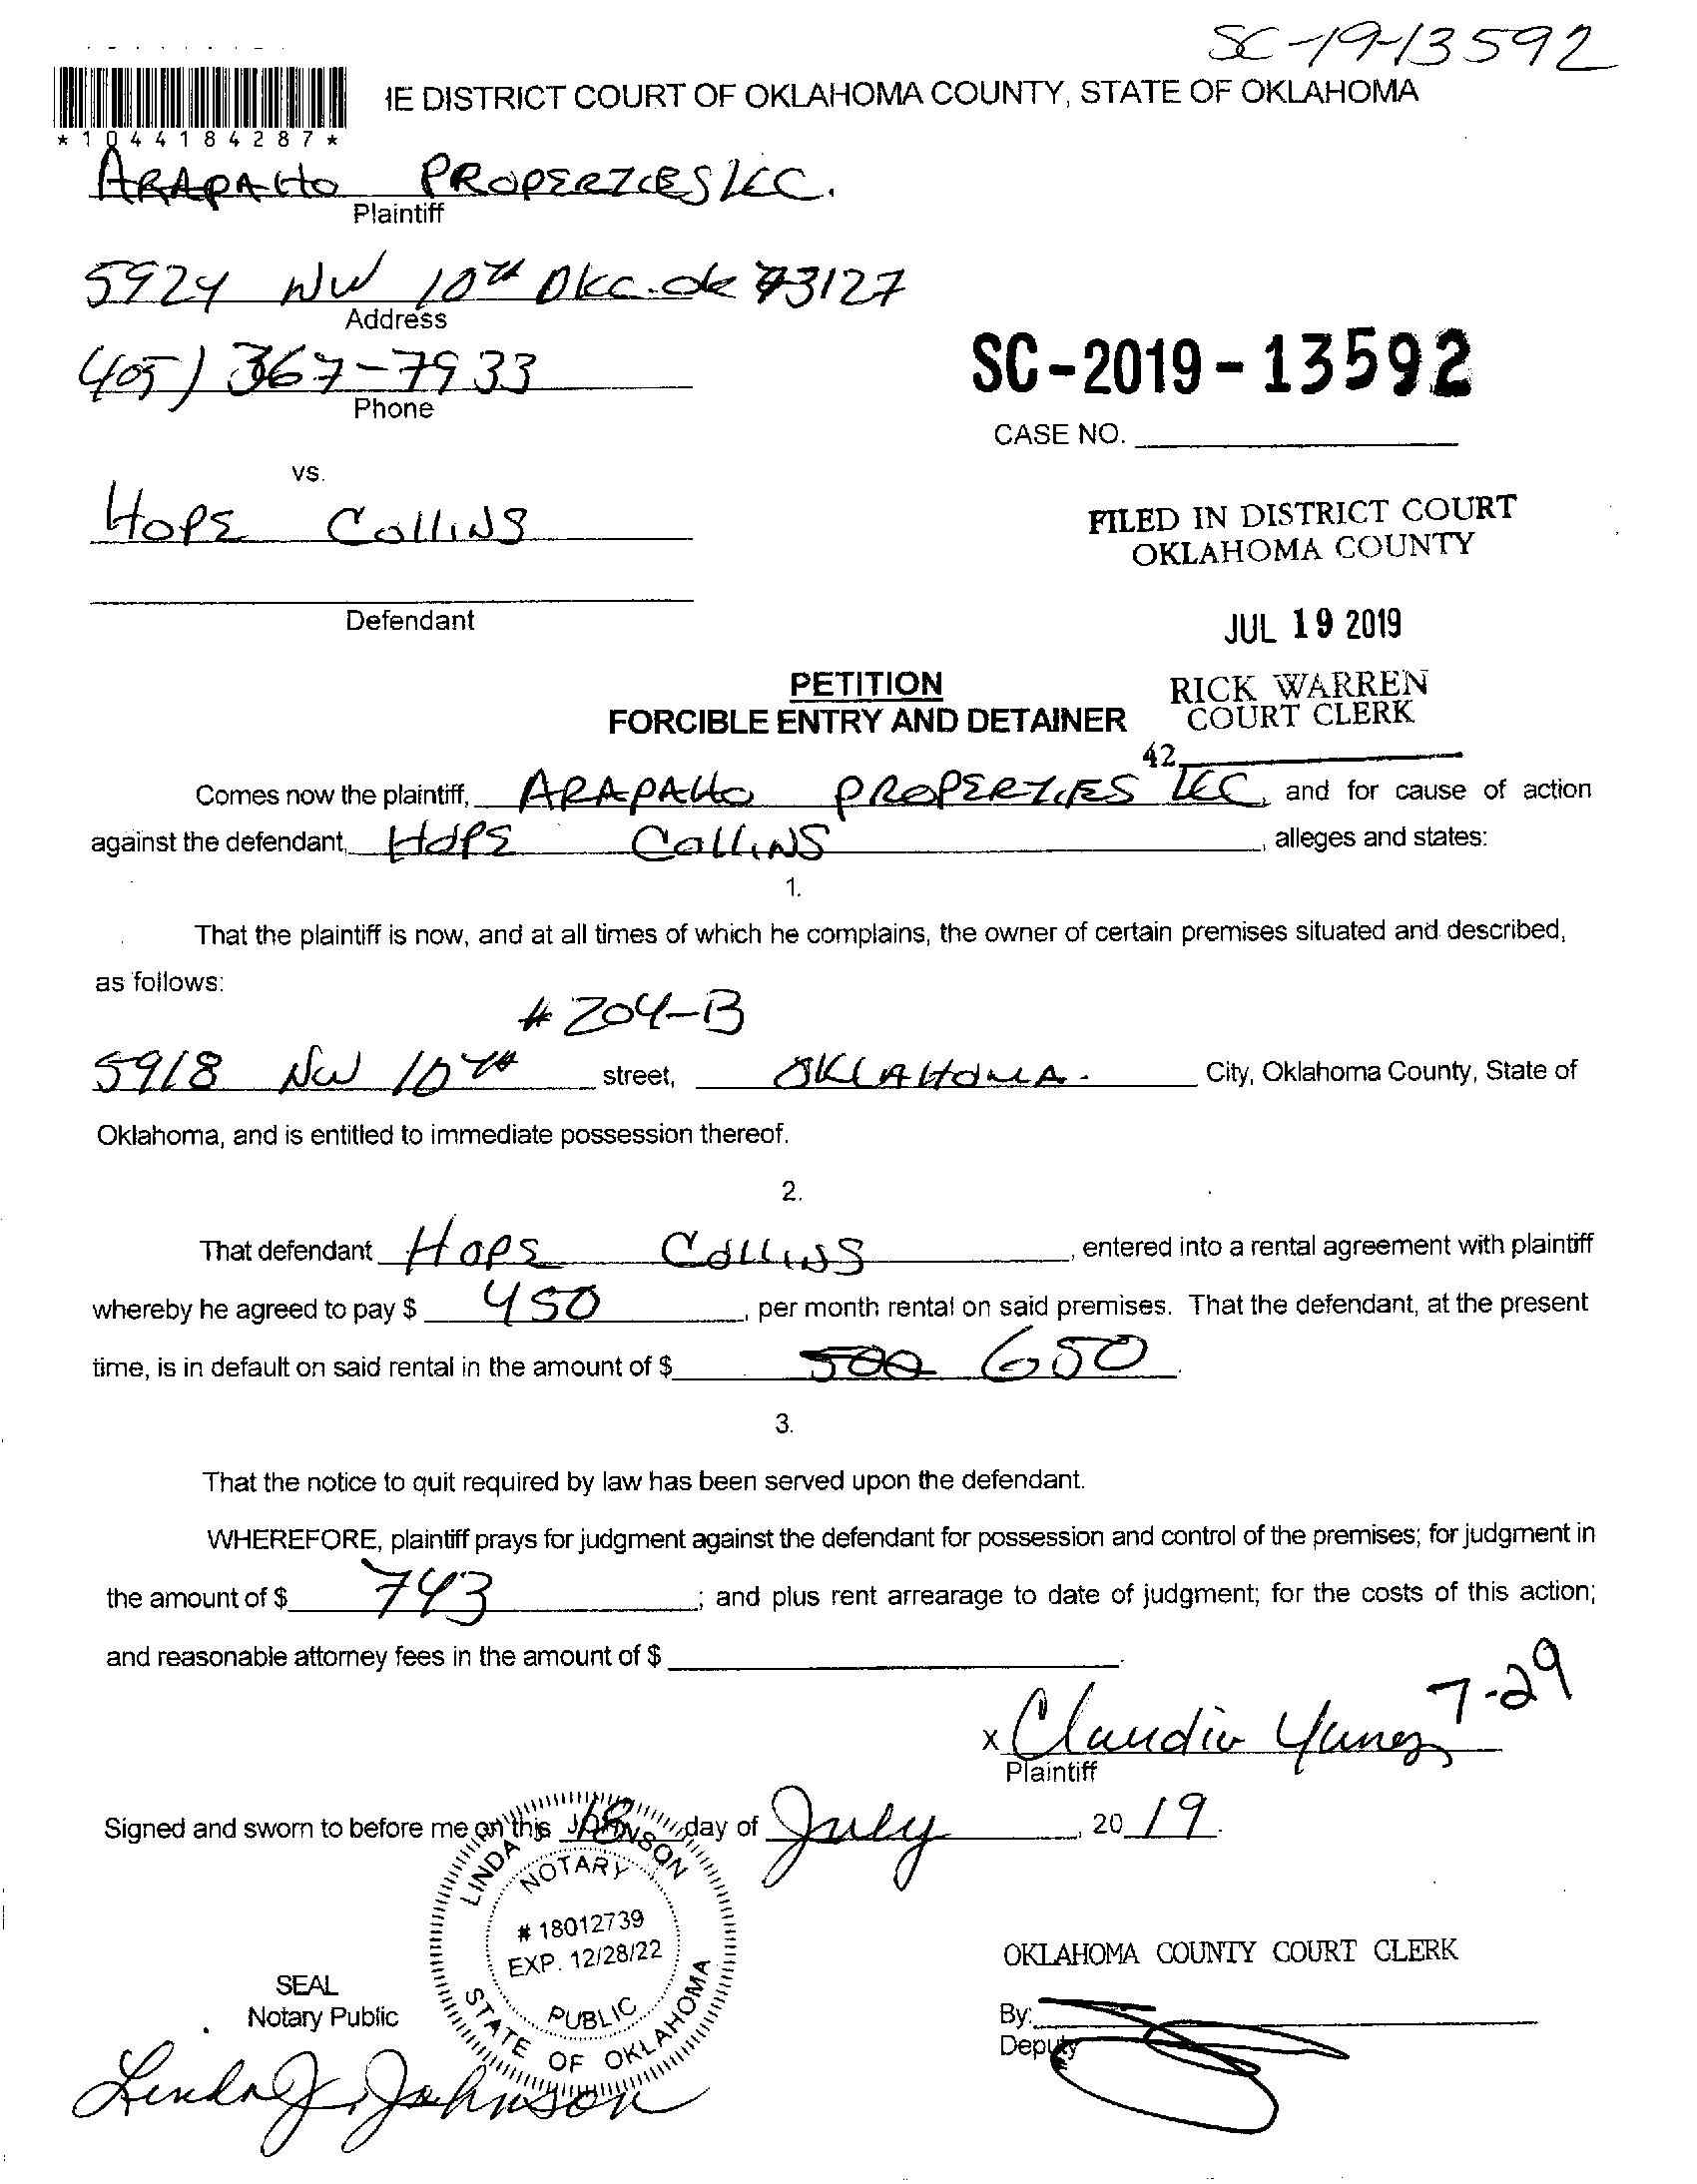 SC-19-13592
IE DISTRICT COURT OF OKLAHOMA COUNTY, STATE OF OKLAHOMA
* 1 0 4 4 1 8 4 2 8 7 *
ARAPAHO PROPERTIES LLC.
Plaintiff
5924 NW 10TH OKC. OK 73127
Address
405) 367-7933
Phone
SC-2019-13592
CASE NO.
vs.
HOPE COLLINS
FILED IN DISTRICT COURT
OKLAHOMA COUNTY
Defendant
JUL 19 2019
PETITION
RICK WARREN
FORCIBLE ENTRY AND DETAINER
COURT CLERK
42
Comes now the plaintiff, ARAPAHO PROPERTIES LLC, and for cause of action
against the defendant, HOPE COLLINS, alleges and states:
1.
That the plaintiff is now, and at all times of which he complains, the owner of certain premises situated and described,
as follows:
# 204-B
5918 NW 10TH street, OKLAHOMA. City, Oklahoma County, State of
Oklahoma, and is entitled to immediate possession thereof.
2.
That defendant HOPE COLLINS, entered into a rental agreement with plaintiff
whereby he agreed to pay $ 450, per month rental on said premises. That the defendant, at the present
time, is in default on said rental in the amount of $ 500 650.
3.
That the notice to quit required by law has been served upon the defendant.
WHEREFORE, plaintiff prays for judgment against the defendant for possession and control of the premises; for judgment in
the amount of $ 743; and plus rent arrearage to date of judgment; for the costs of this action;
and reasonable attorney fees in the amount of $
7-29
x Claudio Yunez
Plaintiff
Signed and sworn to before me on this 18 day of July, 2019.
LINDA J. JOHNSON
NOTARY
# 18012739
EXP. 12/28/22
PUBLIC
STATE OF OKLAHOMA
OKLAHOMA COUNTY COURT CLERK
SEAL
Notary Public
By:
Deputy
Linda J. Johnson